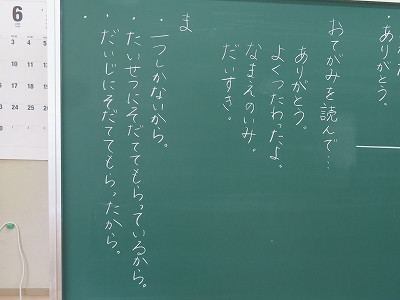 ・ありがとう。
おてがみを読んで…
ありがとう。
よくつたわったよ。
なまえのいみ。
だいすき。
ま
・一つしかないから。
・たいせつにそだててもらっているから。
・だいじにそだててもらったから。
6